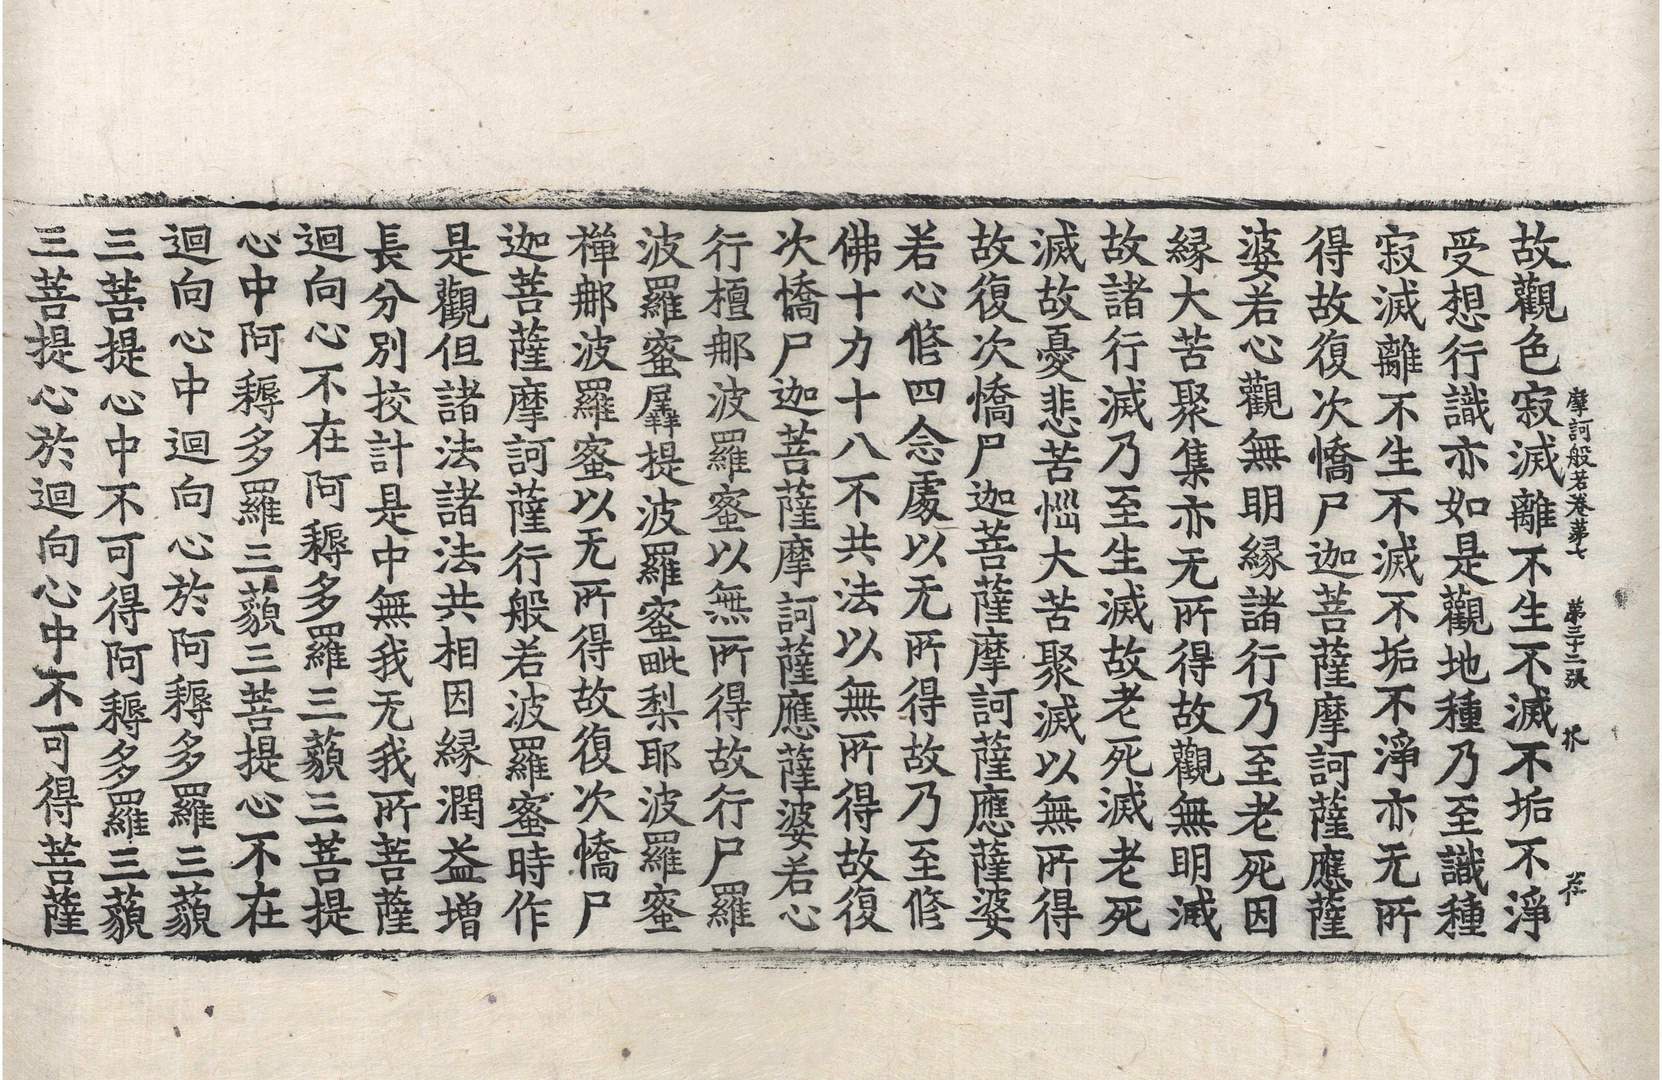 摩訶般若卷第七 第三十二張 芥
故觀色寂滅離不生不滅不垢不淨
受想行識亦如是觀地種乃至識種
寂滅離不生不滅不垢不淨亦无所
得故復次憍尸迦菩薩摩訶薩應薩
婆若心觀無明緣諸行乃至老死因
緣大苦聚集亦无所得故觀無明滅
故諸行滅乃至生滅故老死滅老死
滅故憂悲苦惱大苦聚滅以無所得
故復次憍尸迦菩薩摩訶薩應薩婆
若心修四念處以无所得故乃至修
佛十力十八不共法以無所得故復
次憍尸迦菩薩摩訶薩應薩婆若心
行檀那波羅蜜以無所得故行尸羅
波羅蜜羼提波羅蜜毗梨耶波羅蜜
禪那波羅蜜以无所得故復次憍尸
迦菩薩摩訶薩行般若波羅蜜時作
是觀但諸法諸法共相因緣潤益增
長分別挍計是中無我无我所菩薩
迴向心不在阿耨多羅三藐三菩提
心中阿耨多羅三藐三菩提心不在
迴向心中迴向心於阿耨多羅三藐
三菩提心中不可得阿耨多羅三藐
三菩提心於迴向心中不可得菩薩